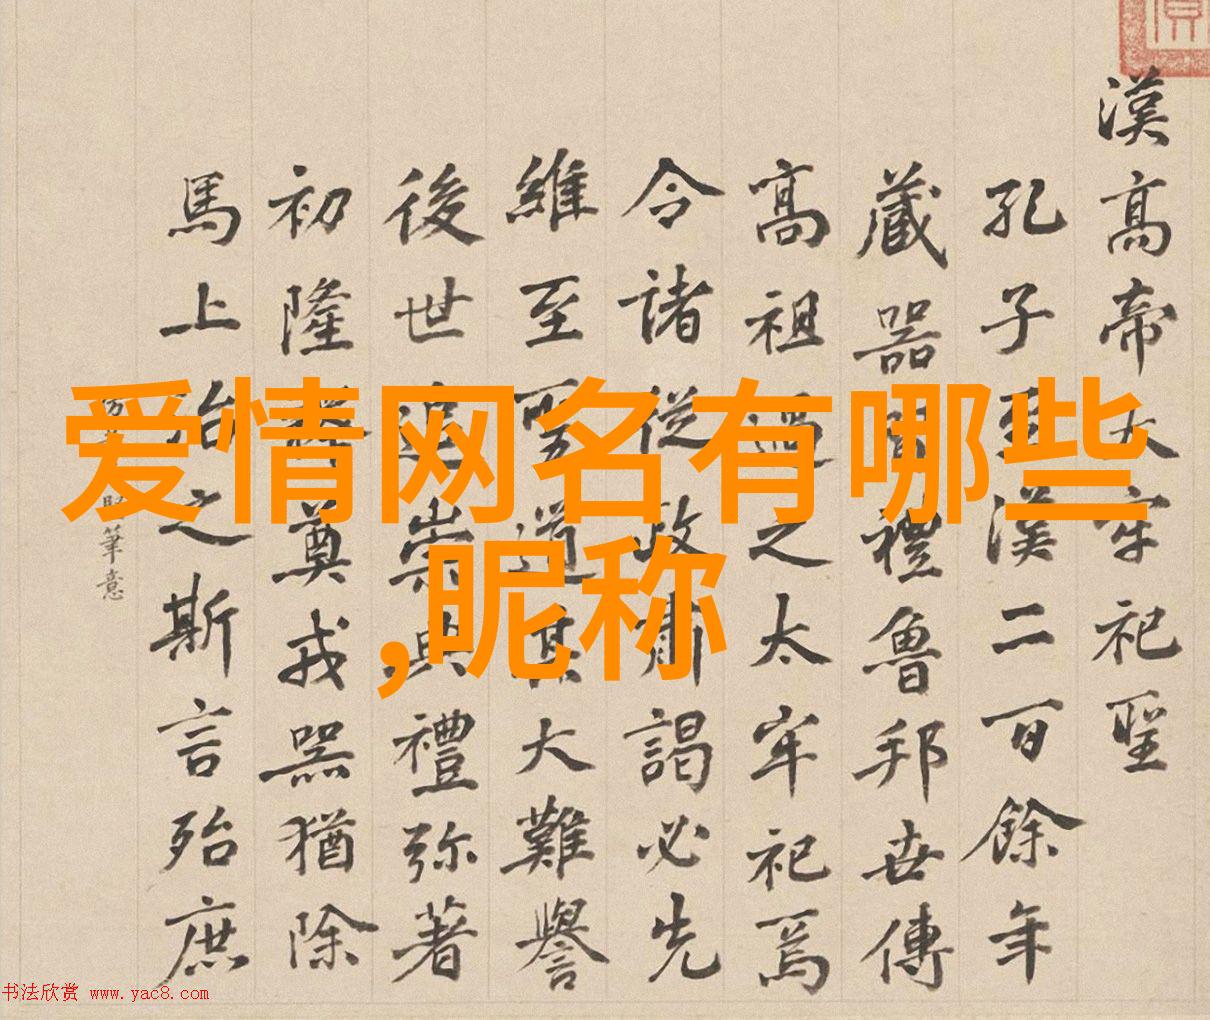 漢高帝太牢祀聖
孔子至漢二百餘年
藏器禮魯邦世傳
高祖過之太牢祀焉
令諸從政肅謁必先
維至聖道其大難譽
後世追崇與禮弥著
初隆釋奠戎器猶除
馬上治之斯言殆庶
筆意
爱情网名有哪些
,昵称
书法欣赏 www.yac8.com